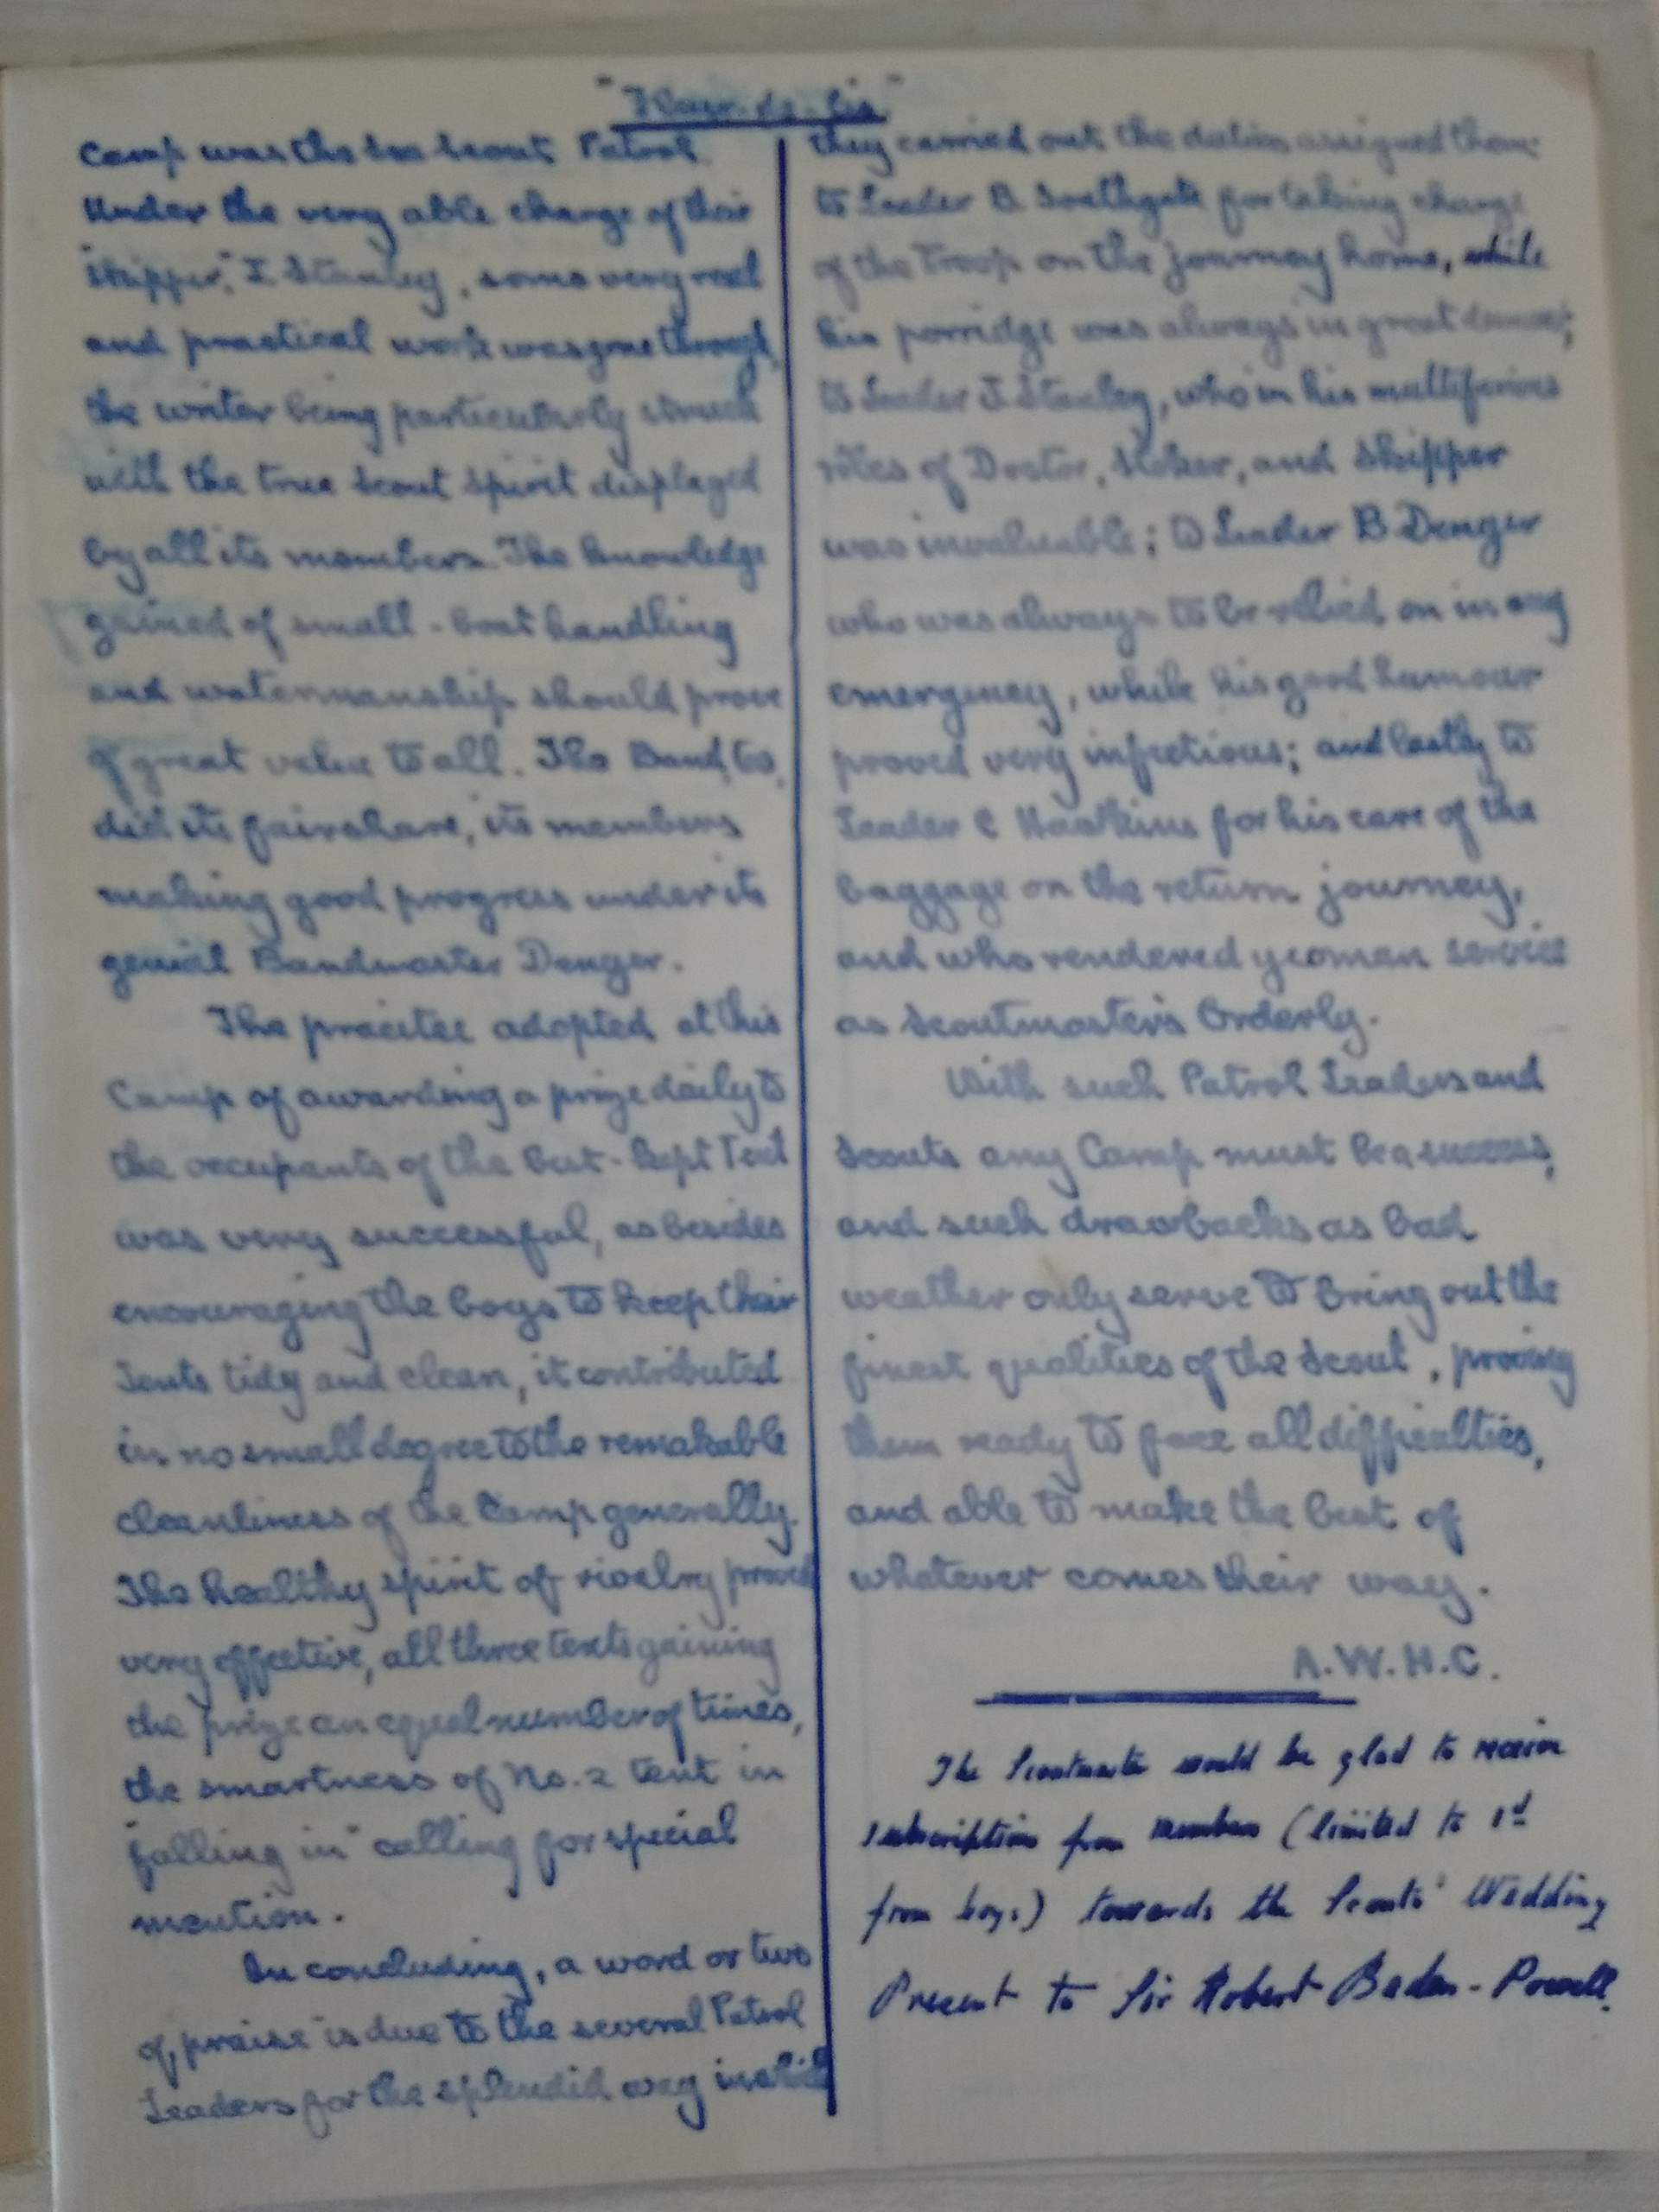 "Fleur-de-lis"
Camp was the Sea Scout Patrol.
Under the very able charge of their
"Skipper," J. Stanley, some very real
and practical work was gone through,
the writer being particularly struck
with the true Scout spirit displayed
by all its members. The knowledge
gained of small-boat handling
and watermanship should prove
of great value to all. The Band, too,
did its fair share, its members
making good progress under its
genial Bandmaster Denger.
The practice adopted at this
Camp of awarding a prize daily to
the occupants of the best-kept Tent
was very successful, as besides
encouraging the boys to keep their
Tents tidy and clean, it contributed
in no small degree to the remakable
cleanliness of the Camp generally.
The healthy spirit of rivalry proved
very effective, all three tents gaining
the prize an equal number of times,
the smartness of No. 2 tent in
"falling in" calling for special
mention.
In concluding, a word or two
of praise is due to the several Patrol
Leaders for the splendid way in which
they carried out the duties assigned them:
to Leader B. Southgate for taking charge
of the Troop on the journey home, while
his porridge was always in great demand;
to Leader J. Stanley, who in his multifarious
rôles of Doctor, Stoker, and Skipper
was invaluable; to Leader B Denger
who was always to be relied on in any
emergency, while his good humour
proved very infectious; and lastly to
Leader C Hawkins for his care of the
baggage on the return journey,
and who rendered yeoman service
as Scoutmaster's Orderly.
With such Patrol Leaders and
Scouts any Camp must be a success,
and such drawbacks as bad
weather only serve to bring out the
finest qualities of the Scout, proving
them ready to face all difficulties,
and able to make the best of
whatever comes their way.
A.W.H.C.
The Scoutmaster would be glad to receive
subscriptions from members (limited to 1d
from boys) towards the Scouts' Wedding
Present to Sir Robert Baden-Powell.